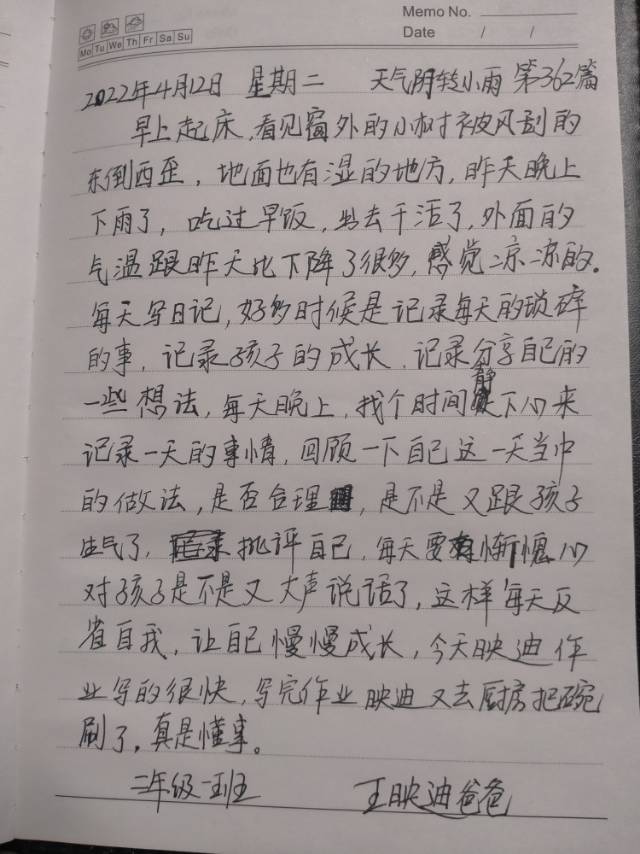 Memo No.
Date / /
Mo Tu We Th Fr Sa Su
2022年4月12日 星期二 天气阴转小雨 第362篇
早上起床,看见窗外的小树被风刮的
东倒西歪,地面也有湿的地方,昨天晚上
下雨了,吃过早饭,出去干活了,外面的
气温跟昨天比下降了很多,感觉凉凉的。
每天写日记,好多时候是记录每天的琐碎
的事,记录孩子的成长,记录分享自己的
一些想法,每天晚上,找个时间静下心来
记录一天的事情,回顾一下自己这一天当中
的做法,是否合理,是不是又跟孩子
生气了,批评自己,每天要有惭愧心
对孩子是不是又大声说话了,这样每天反
省自我,让自己慢慢成长,今天映迪作
业写的很快,写完作业映迪又去厨房把碗
刷了,真是懂事。
二年级一班 王映迪爸爸